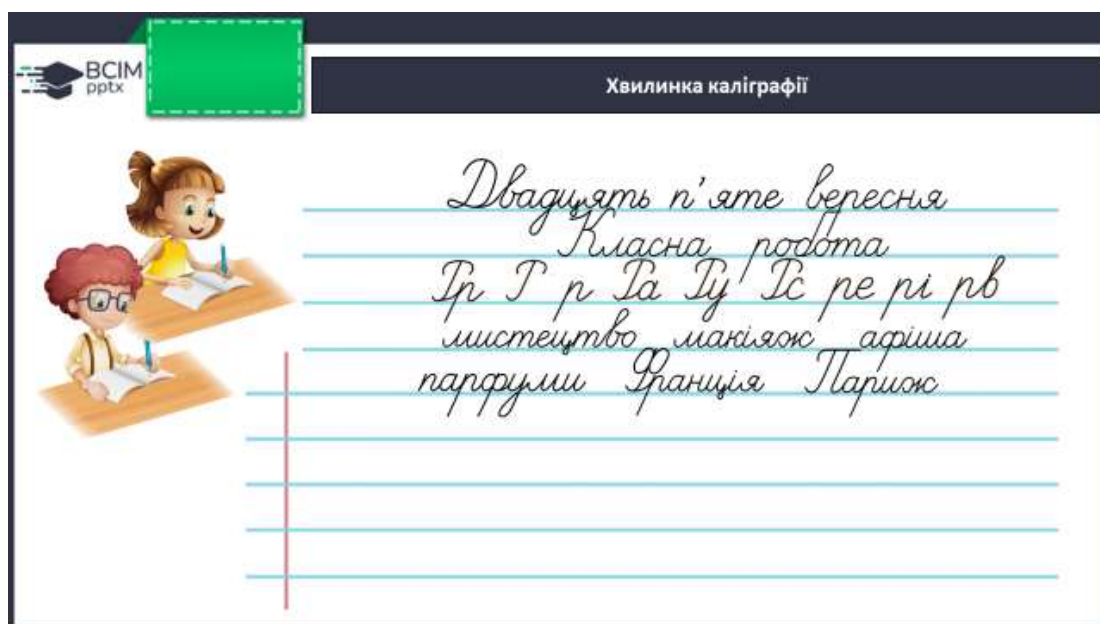 ВСІМ
pptx
Хвилинка каліграфії
Двадцять п'яте вересня
Класна робота
Гр Г р Га Гу Гс ре рі рв
мистецтво макіяж афіша
парфуми Франція Париж